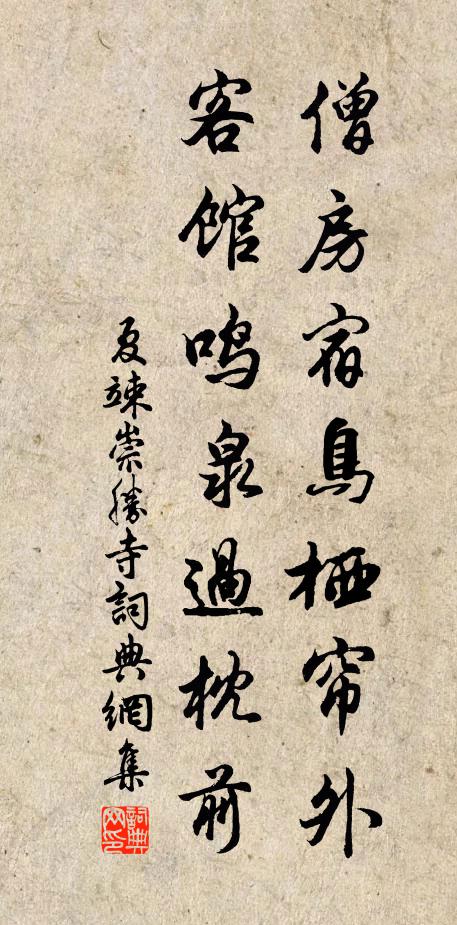 僧房宿鳥栖帘外
客館鳴泉過枕前
夏竦崇勝寺詞典網集
詞典網印